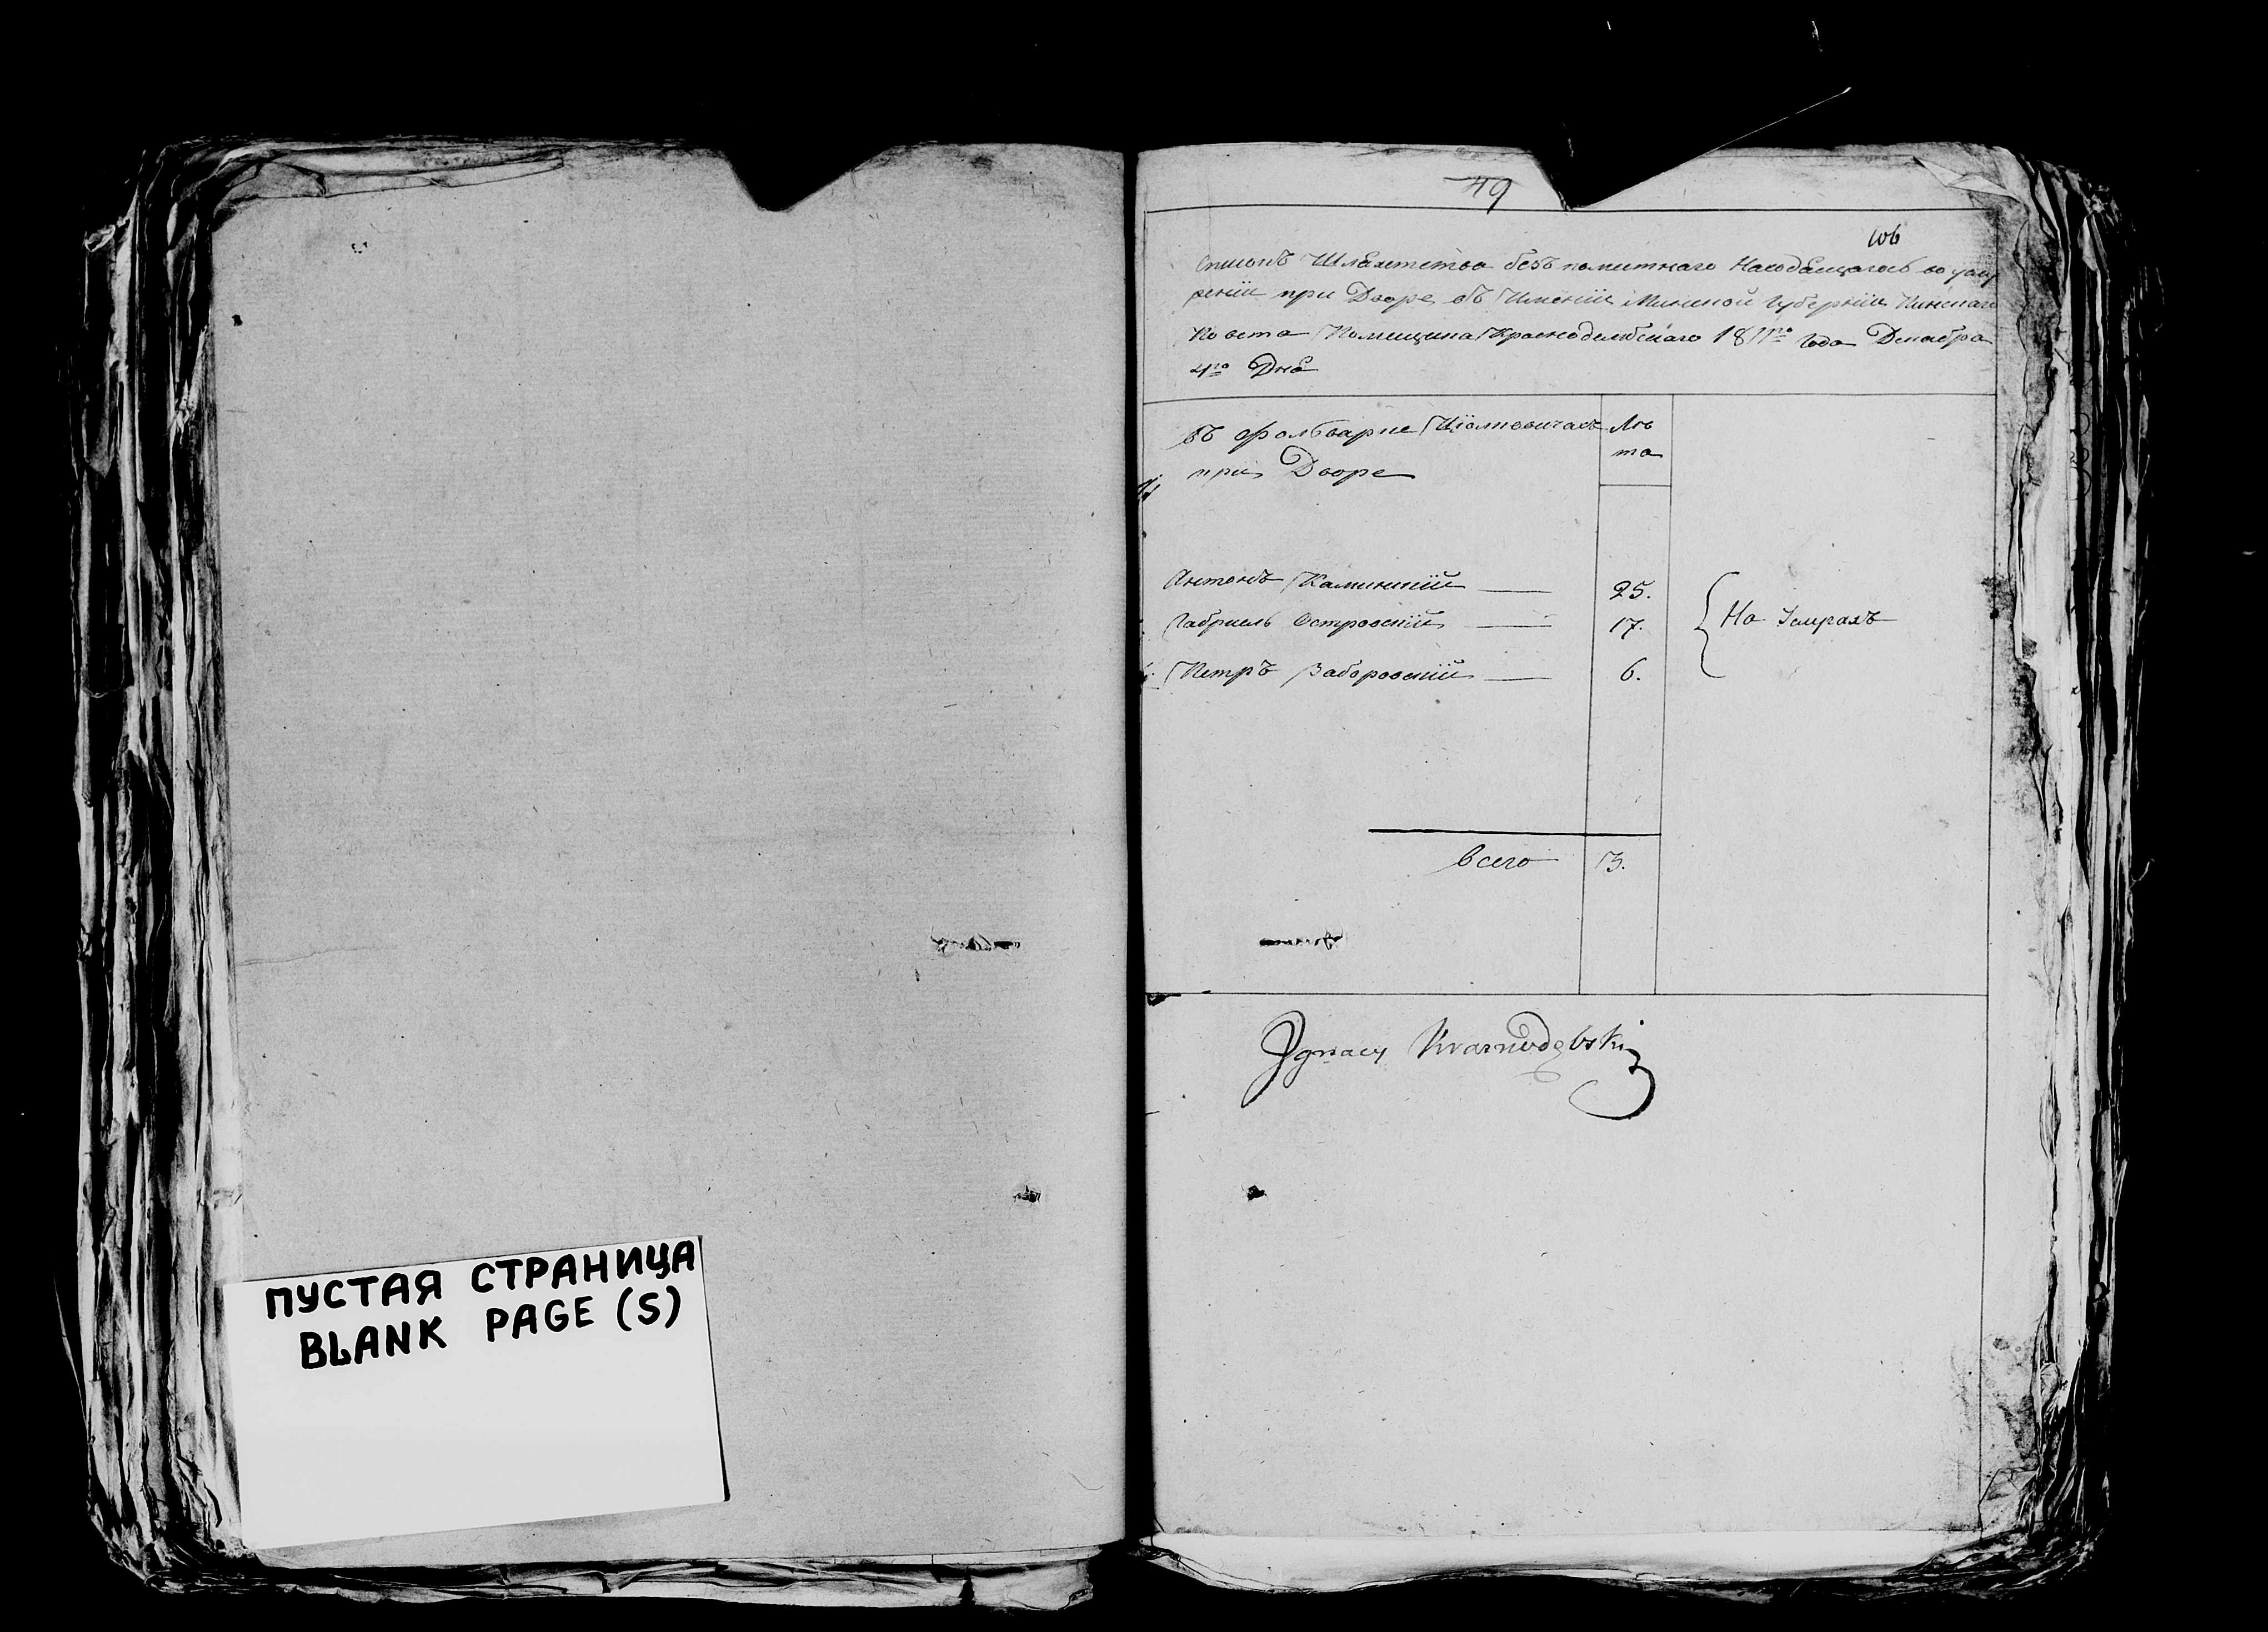 ПУСТАЯ СТРАНИЦА
BLANK PAGE (S)
49
106
Списокъ Шляхетства безъпоместнаго Находящагося во
рении при Дворе въ Имении Минской Губернии Пинскаго
Повета Помещика Краснодембскаго 1811го Года Декабра
4го Дня
въ Фольварке при Дворе
Лѣ
та
Антонъ Каминский 25.
Габриель Островский 17.
Петръ Заборовский 6.
На
Всего 3.
Ignacy Krasnodębski